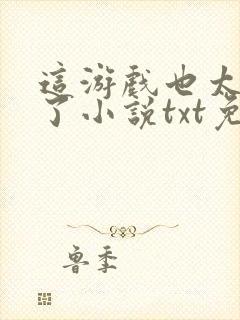 這游戲也太
了小說txt免
魯季